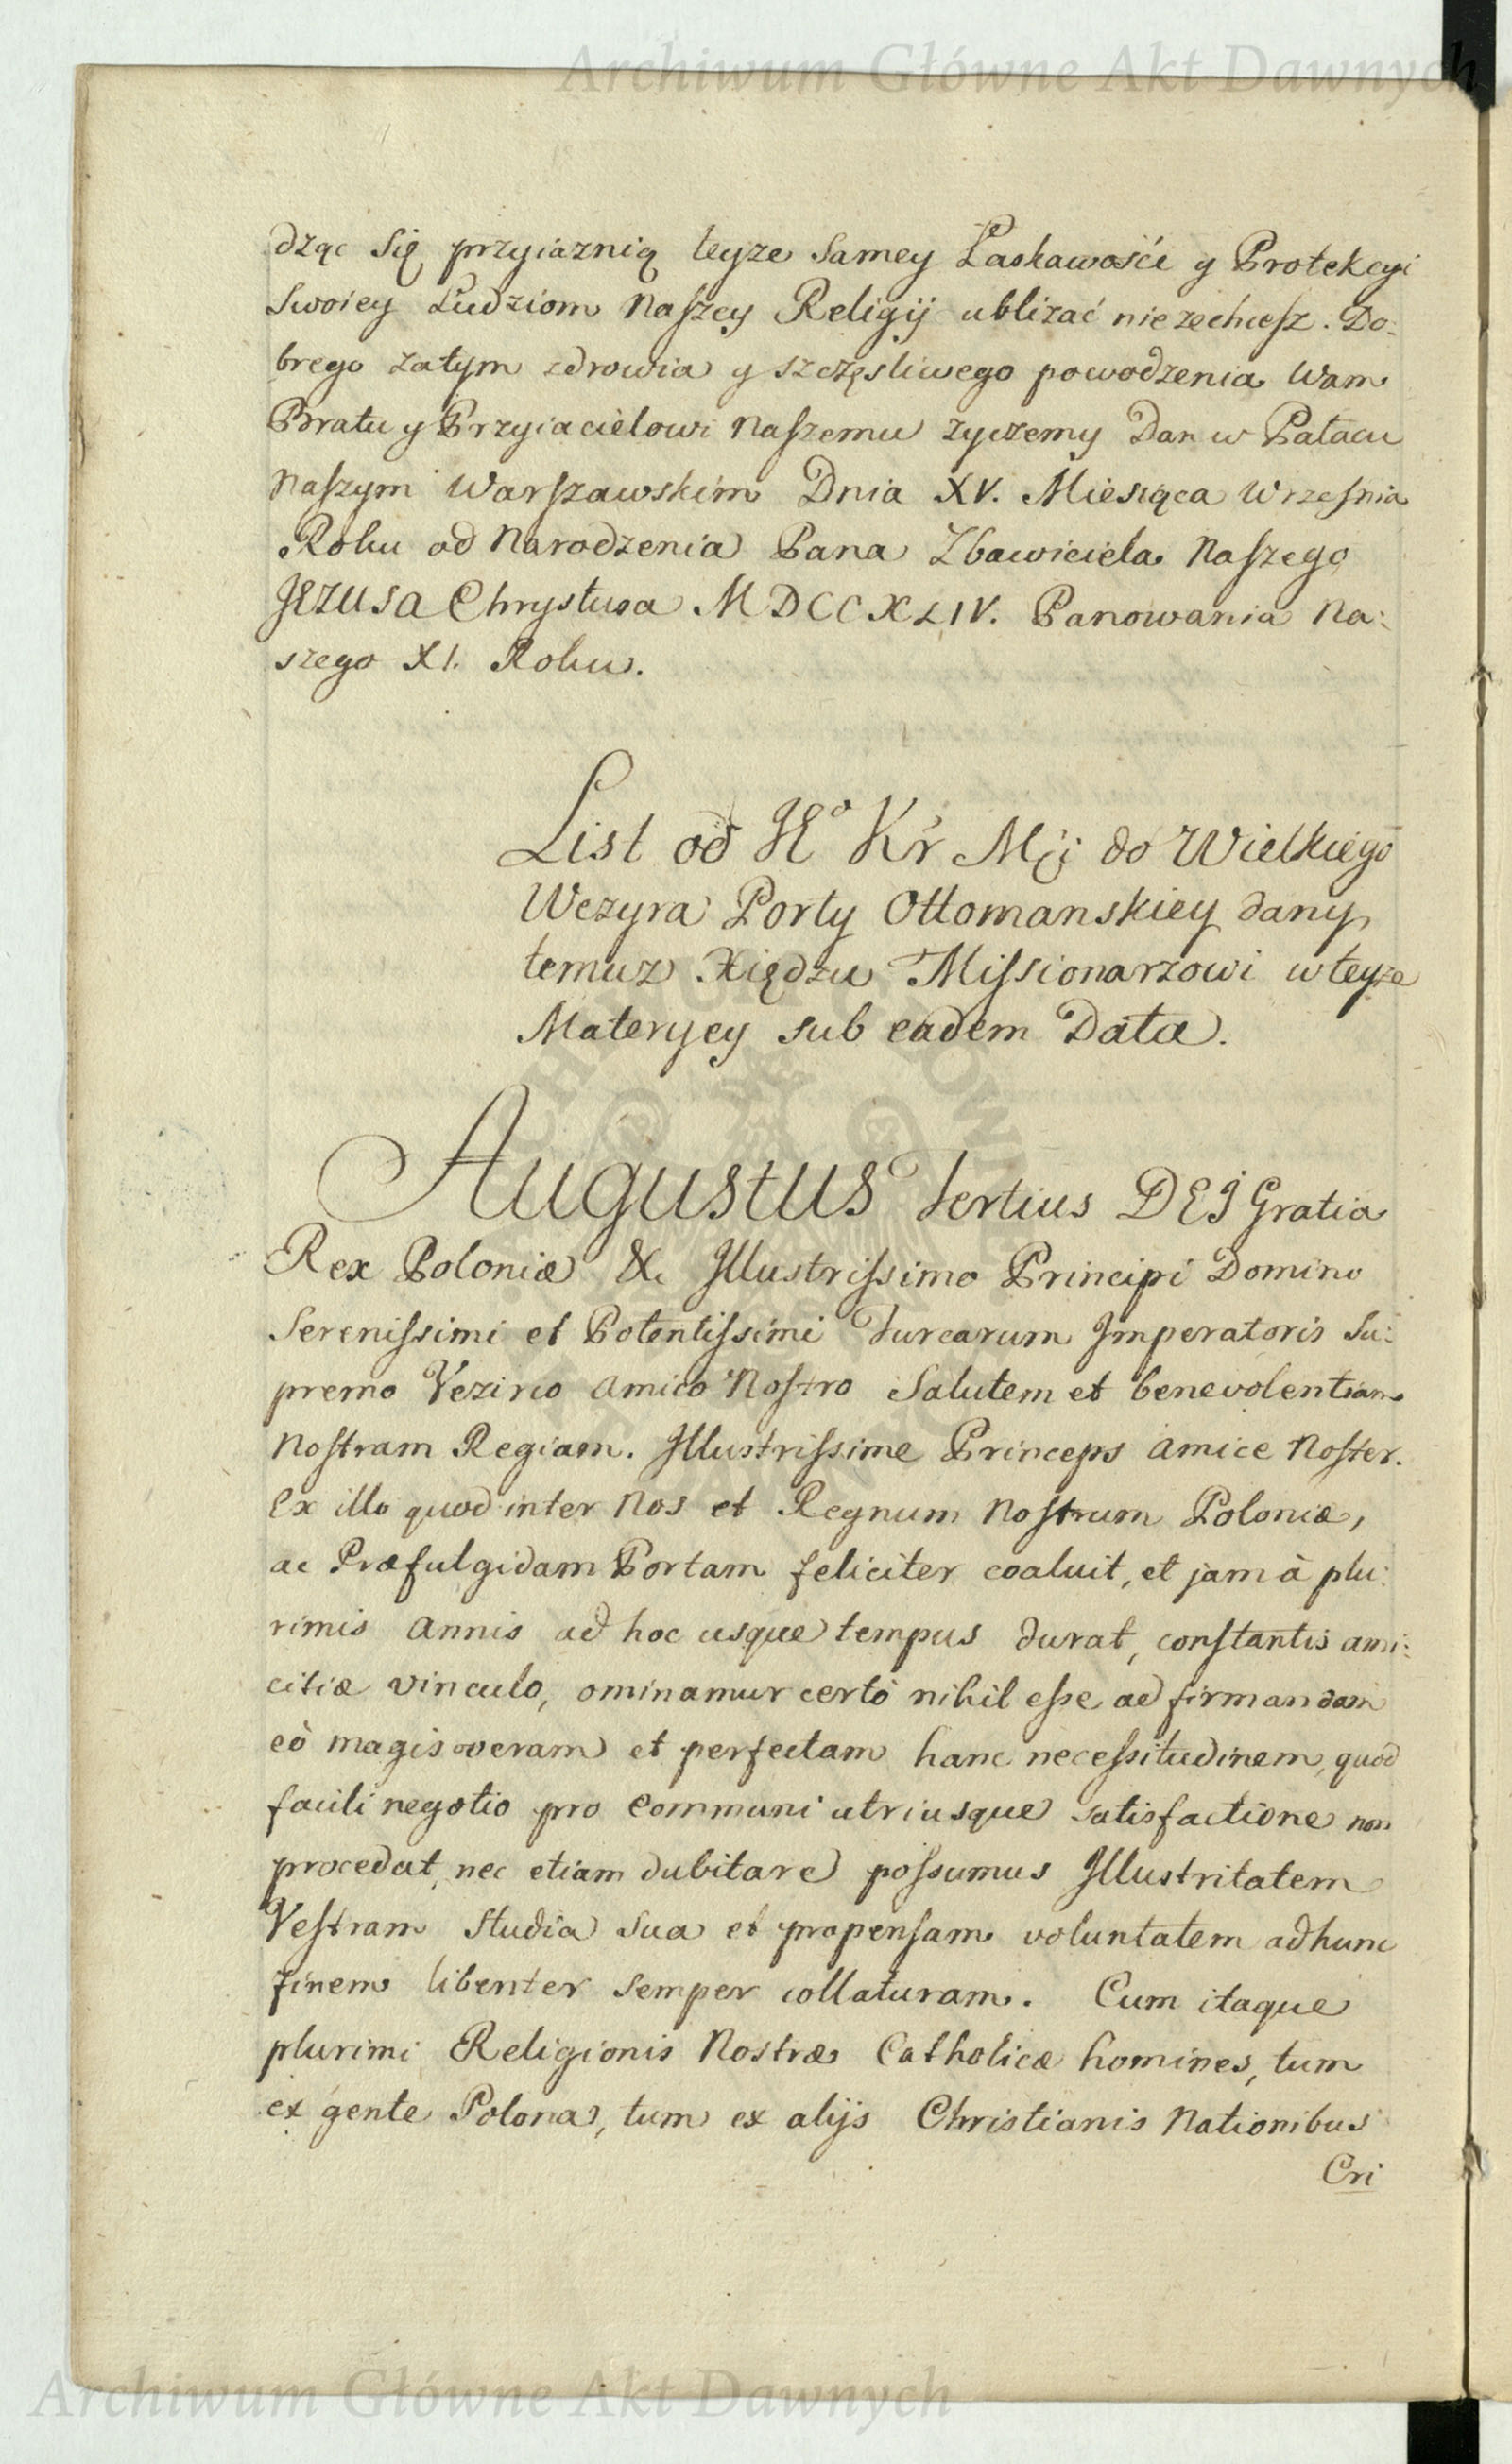 Archiwum Główne Akt Dawnych
dząc Się przyiaznią teyze Samey Łaskawośći y Protekcyi
Swoiey Ludziom Naszey Religij ublizać nie zechcesz. Do:
brego zatym zdrowia y szczęsliwego powodzenia Wam
Bratu y Przyiacielowi Naszemu zyczemy Dan w Pałacu
Naszym Warszawskim Dnia XV. Miesiąca Wrzesnia
Roku od Narodzenia Pana Zbawiciela Naszego
JEZUSA Chrystusa MDCCXLIV. Panowania Na:
szego XI. Roku.
List od JEº Kr Mći do Wielkiego
Wezyra Porty Ottomanskiey dany
temuz Xiędzu Missionarzowi w teyze
Materyey sub eadem Data.
Augustus Tertius DEI Gratia
Rex Poloniæ &c Illustrissimo Principi Domino
Serenissimi et Potentissimi Turcarum Imperatoris Su:
premo Vezirio Amico Nostro Salutem et benevolentiam
Nostram Regiam. Illustrissime Princeps Amice Noster.
Ex illo quod inter Nos et Regnum Nostrum Poloniæ,
ac Præfulgidam Portam feliciter coaluit, et jam à plu:
rimis Annis ad hoc usque tempus durat, constantis ami:
citiæ vinculo, ominamur certò nihil esse ad firmandam
eò magis veram et perfectam hanc necessitudinem, quod
facili negotio pro communi utriusque satisfactione non
procedat, nec etiam dubitare possumus Illustritatem
Vestram Studia Sua et propensam voluntatem ad hunc
finem libenter Semper collaturam. Cum itaque
plurimi Religionis Nostræ Catholicæ homines, tum
ex gente Polona, tum ex alijs Christianis Nationibus
Cri
Archiwum Główne Akt Dawnych